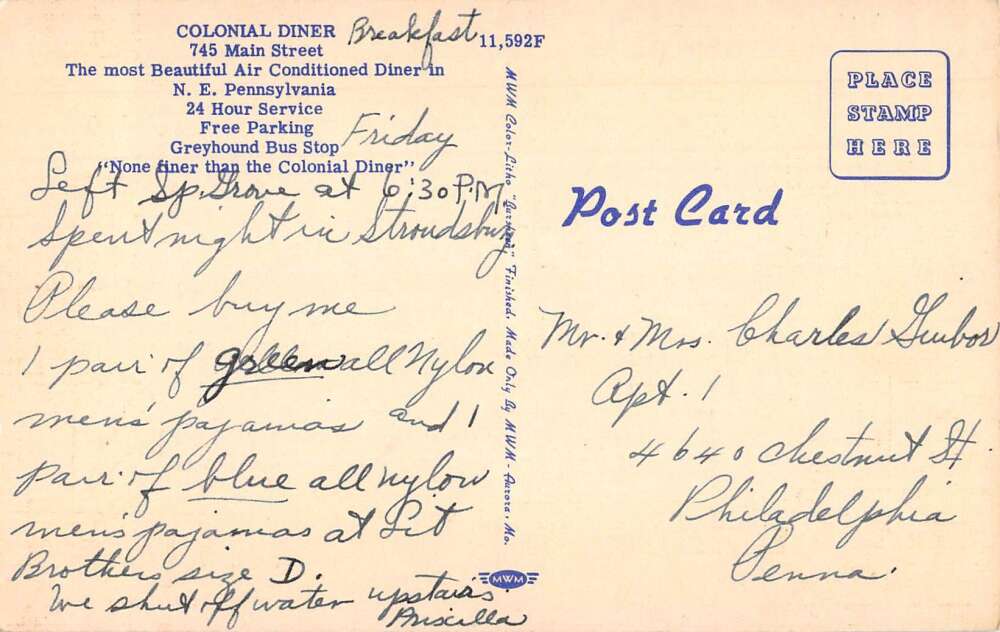 COLONIAL DINER
745 Main Street
The most Beautiful Air Conditioned Diner in
N. E. Pennsylvania
24 Hour Service
Free Parking
Greyhound Bus Stop
"None finer than the Colonial Diner"
Breakfast
11,592F
Friday
Left Sp. Grove at 6:30 P.M.
Spent night in Stroudsburg
Please buy me
1 pair of green all nylon
men's pajamas and 1
pair of blue all nylon
men's pajamas at Lit
Brothers size D.
We shut off water upstairs.
Priscilla
MWM Color-Litho "Finished. Made Only By MWM - Aurora, Mo.
MWM
PLACE
STAMP
HERE
Post Card
Mr. & Mrs. Charles
Apt. 1
4640 Chestnut St.
Philadelphia
Penna.